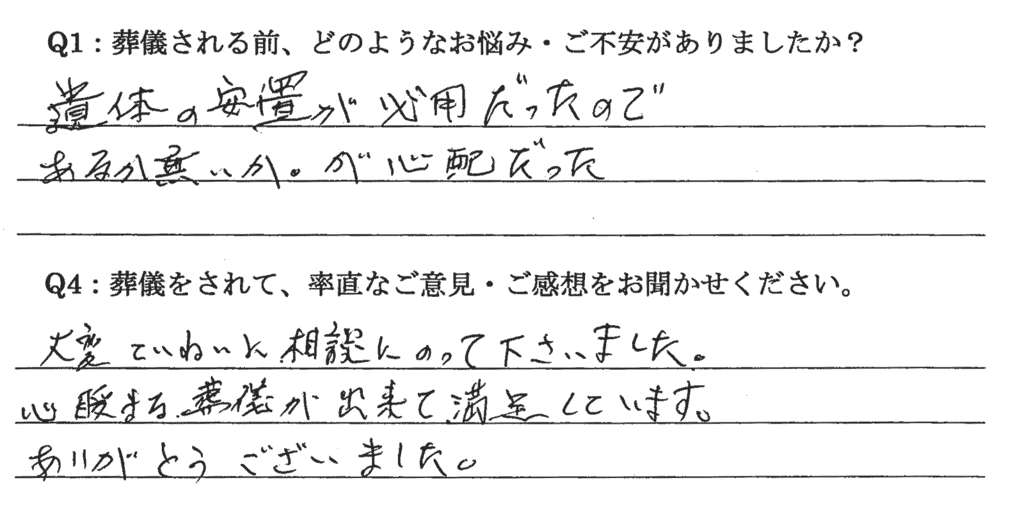 Q1：葬儀される前、どのようなお悩み・ご不安がありましたか？
遺体の安置が必用だったので
あるか無いか。が心配だった
Q4：葬儀をされて、率直なご意見・ご感想をお聞かせください。
大変ていねいに相談にのって下さいました。
心暖まる葬儀が出来て満足しています。
ありがとうございました。